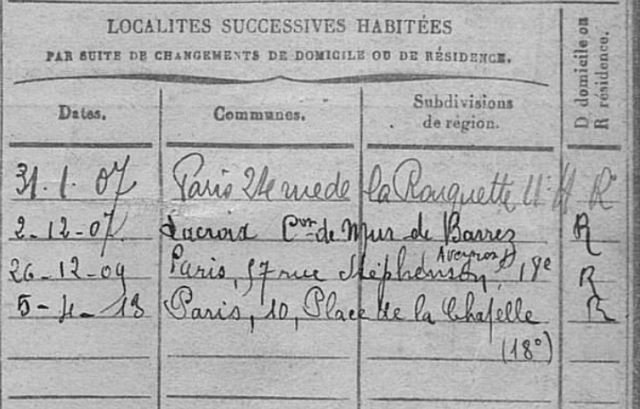 LOCALITES SUCCESSIVES HABITÉES
PAR SUITE DE CHANGEMENTS DE DOMICILE OU DE RÉSIDENCE.
Dates. Communes. Subdivisions de région. D domicile ou R résidence.
31.1.07 Paris 24 rue de la Roquette 11e R
2-12-07 Lacroix Con de Mur de Barrez R
Aveyron
26-12-09 Paris, 57 rue Stéphenson, 18e R
5-4-13 Paris, 10, Place de la Chapelle R
(18e)